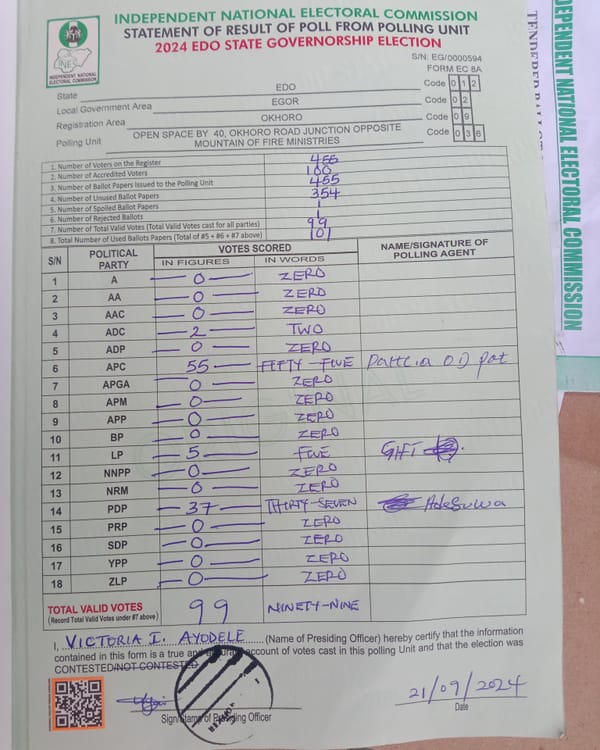 INDEPENDENT NATIONAL ELECTORAL COMMISSION
STATEMENT OF RESULT OF POLL FROM POLLING UNIT
2024 EDO STATE GOVERNORSHIP ELECTION
INEC
INDEPENDENT NATIONAL ELECTORAL COMMISSION
S/N: EG/0000594
FORM EC 8A
State EDO Code 0 1 2
Local Government Area EGOR Code 0 2
Registration Area OKHORO Code 0 9
Polling Unit OPEN SPACE BY 40, OKHORO ROAD JUNCTION OPPOSITE MOUNTAIN OF FIRE MINISTRIES Code 0 3 6
1. Number of Voters on the Register 455
2. Number of Accredited Voters 100
3. Number of Ballot Papers Issued to the Polling Unit 455
4. Number of Unused Ballot Papers 354
5. Number of Spoiled Ballot Papers 1
6. Number of Rejected Ballots 1
7. Number of Total Valid Votes (Total Valid Votes cast for all parties) 99
8. Total Number of Used Ballots Papers (Total of #5 + #6 + #7 above) 101
S/N POLITICAL PARTY VOTES SCORED NAME/SIGNATURE OF POLLING AGENT
IN FIGURES IN WORDS
1 A 0 ZERO
2 AA 0 ZERO
3 AAC 0 ZERO
4 ADC 2 TWO
5 ADP 0 ZERO
6 APC 55 FIFTY-FIVE
7 APGA 0 ZERO
8 APM 0 ZERO
9 APP 0 ZERO
10 BP 0 ZERO
11 LP 5 FIVE GIFT
12 NNPP 0 ZERO
13 NRM 0 ZERO
14 PDP 37 THIRTY-SEVEN Adesuwa
15 PRP 0 ZERO
16 SDP 0 ZERO
17 YPP 0 ZERO
18 ZLP 0 ZERO
TOTAL VALID VOTES 99 NINETY-NINE
(Record Total Valid Votes under #7 above)
I, VICTORIA I. AYODELE (Name of Presiding Officer) hereby certify that the information
contained in this form is a true and accurate account of votes cast in this polling Unit and that the election was
CONTESTED/NOT CONTESTED
21/09/2024
Sign/Stamp of Presiding Officer Date
INDEPENDENT NATIONAL ELECTORAL COMMISSION